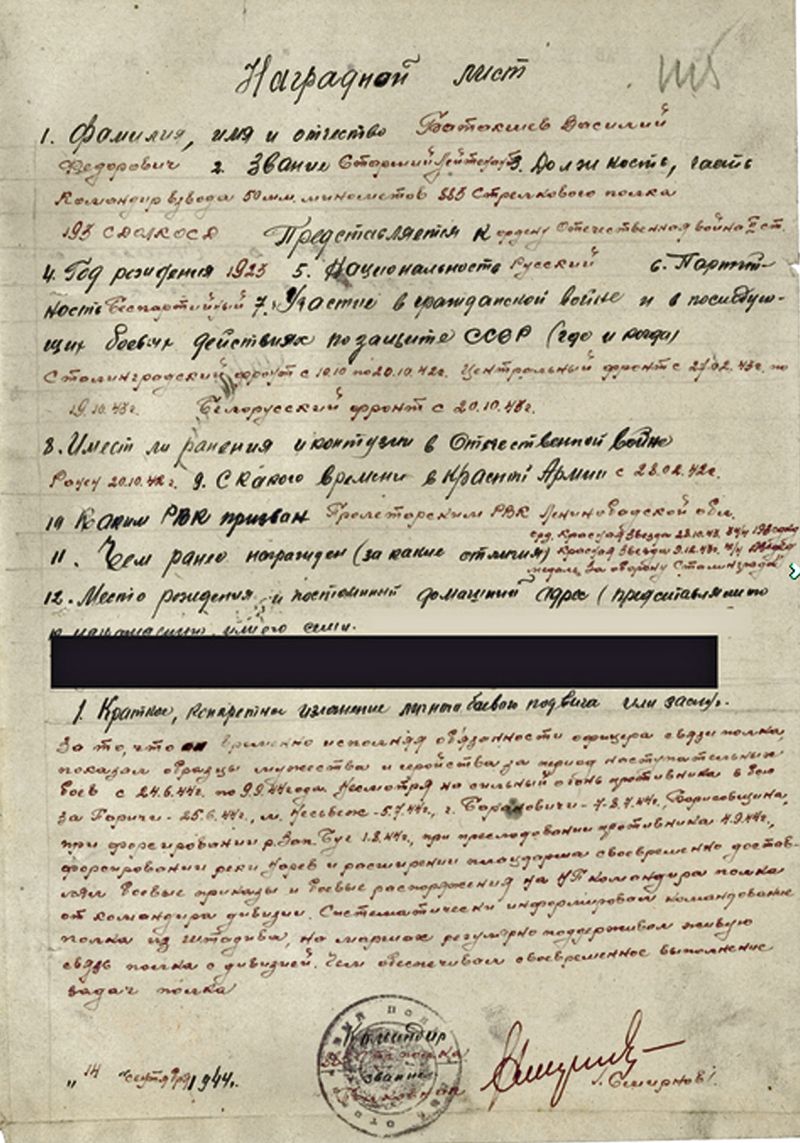 Наградной лист
1. Фамилия, имя и отчество Батакшев Василий
Федорович 2. Звание Старший лейтенант 3. Должность, часть
Командир взвода 50 мм. минометов 883 Стрелкового полка
193 СДДКОСД Представляется к ордену Отечественная война II ст.
4. Год рождения 1923 5. Национальность Русский 6. Партий-
ность Беспартийный 7. Участие в гражданской войне и в последую-
щих боевых действиях по защите СССР (где и когда)
Сталинградский фронт с 10.10 по 20.10.42г. Центральный фронт с 27.02.43г. по
19.10.43г. Белорусский фронт с 20.10.43г.
8. Имеет ли ранения и контузии в Отечественной войне
20.10.42г. 9. С какого времени в Красной Армии с 28.02.42г.
10 Каким РВК призван Пролетарским РВК Ленинобадской обл.
орд. Красная Звезда 28.10.43.
11. Чем ранее награжден (за какие отличия) Красная Звезда 9.12.43г.
медаль За оборону Сталинграда
12. Место рождения и постоянный домашний адрес (представляемого
к награждению и его семьи.
1. Краткое, конкретное изложение личного боевого подвига или заслуг.
За то, что он временно исполняя обязанности офицера связи полка,
показал образцы мужества и геройства за период наступательных
боев с 24.6.44г. по 9.9.44 года. Несмотря на сильный огонь противника в бою
за Паричи - 25.6.44г., м. Несвеж - 5.7.44г., г. Барановичи - 7-8.7.44г., Борисовщина,
при форсировании р. Зап. Буг 1.8.44г., при преследовании противника 4.9.44г.,
форсировании реки Нарев и расширении плацдарма своевременно достав-
лял боевые приказы и боевые распоряжения на НП командира полка
от командира дивизии. Систематически информировал командование
полка из штадива, на маршах регулярно поддерживал живую
связь полка с дивизией. Чем обеспечивал своевременное выполнение
задач полка
Командир
883 стр. полка
звание
„14 сентября 1944г.
/Смирнов/